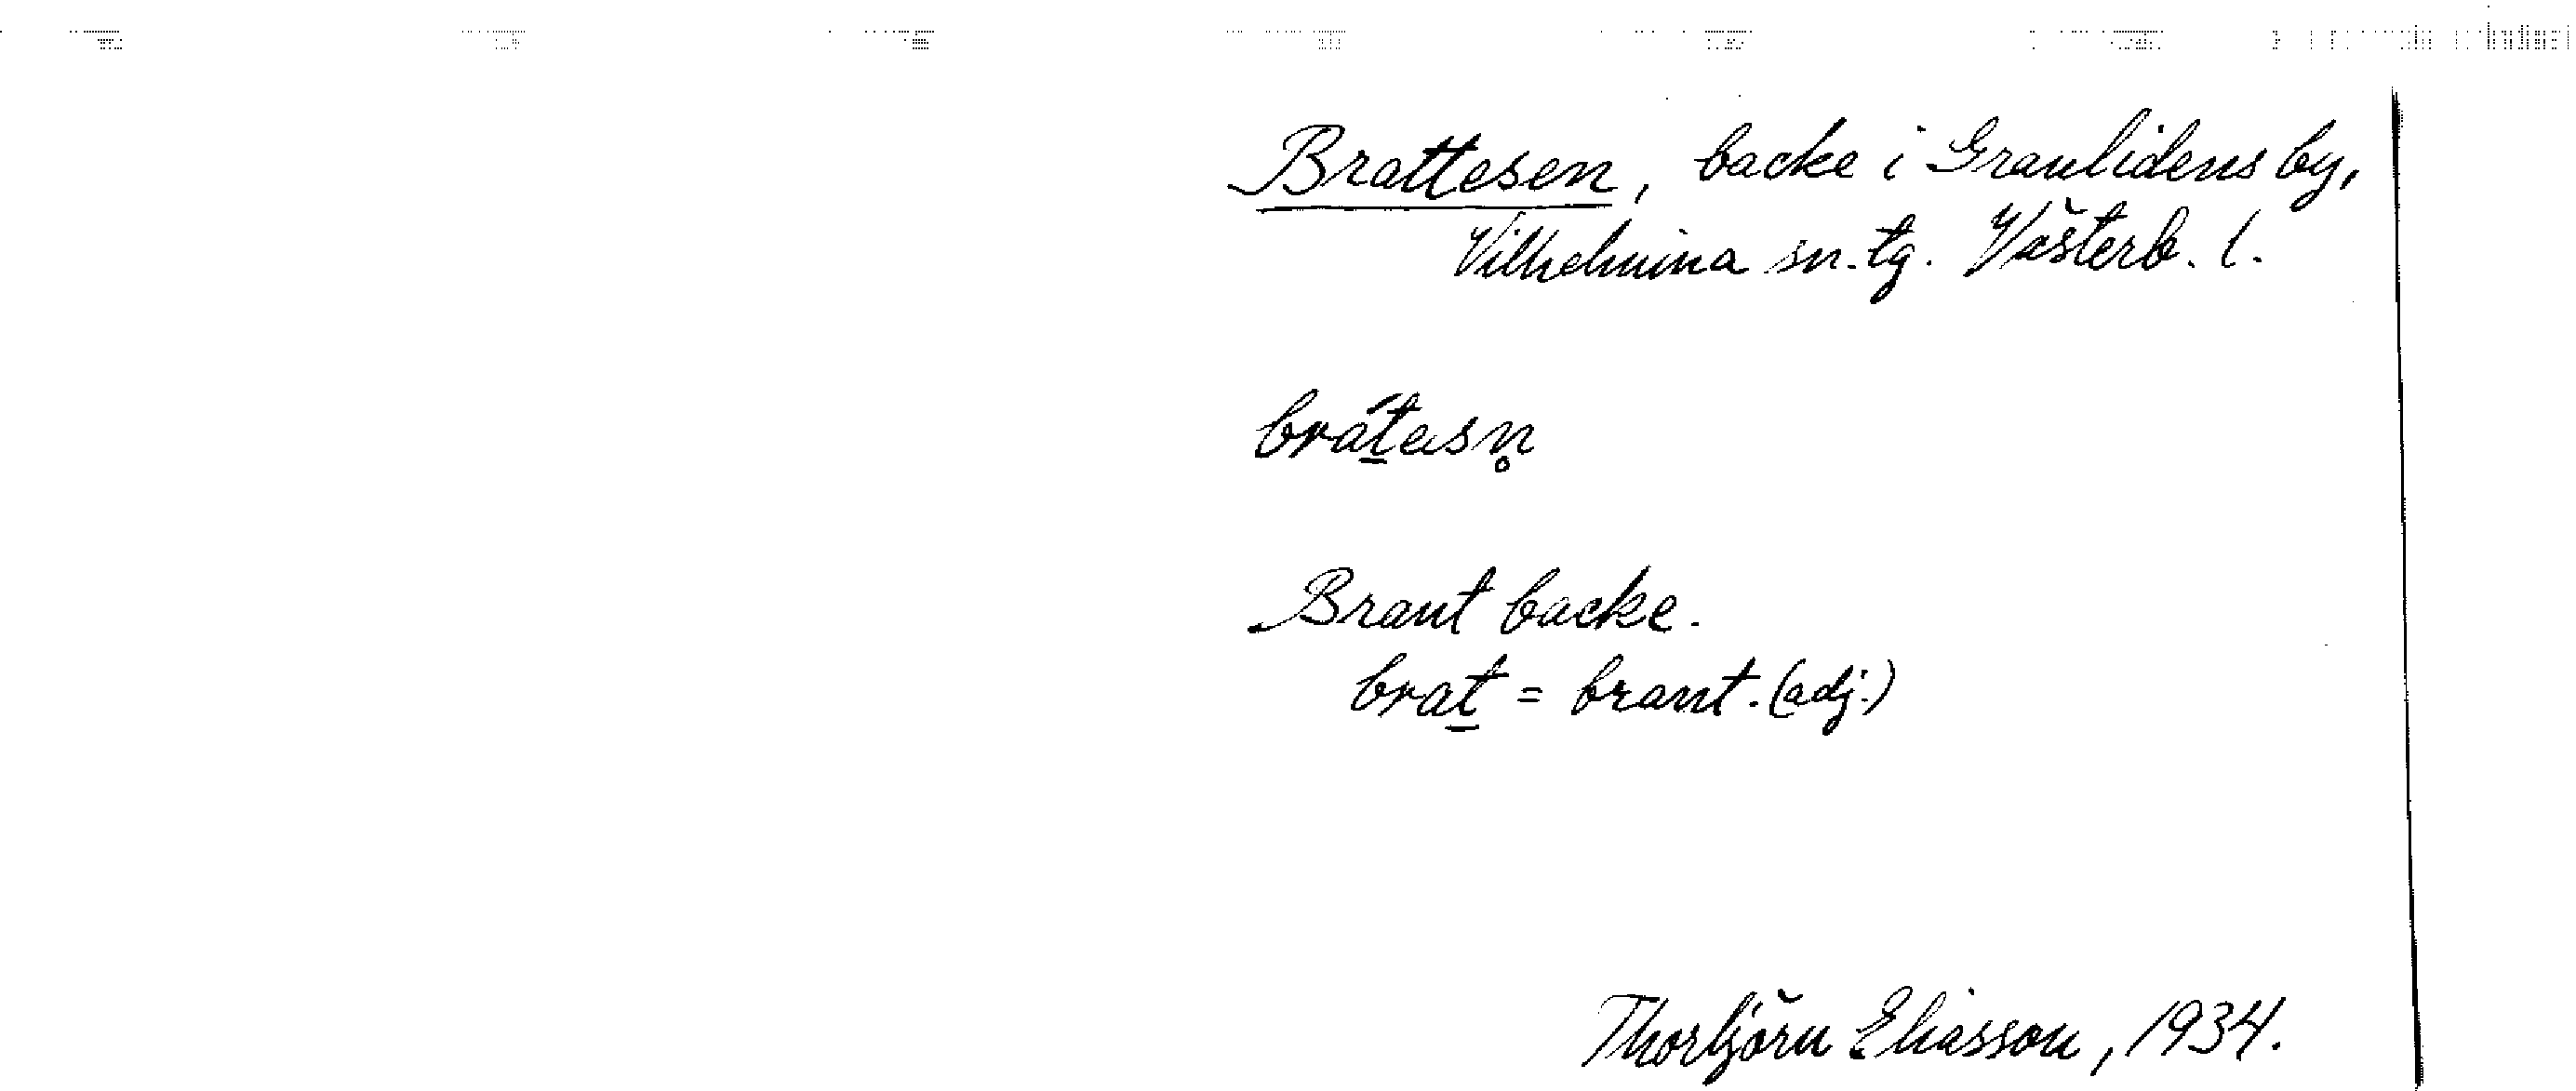 Brattesen, backe i Granlidens by,
Vilhelmina sn. tg. Västerb. l.
brát̲asn̥
Brant backe.
brat̲ = brant. (adj.)
Thorbjörn Eliasson, 1934.